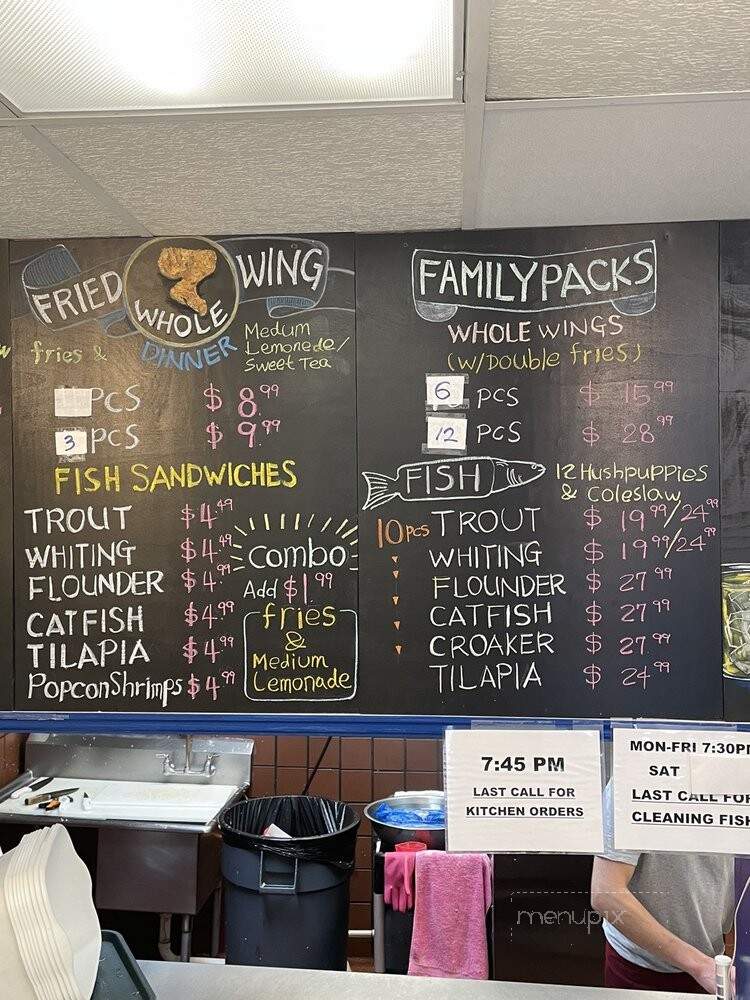 FRIED WHOLE WING
DINNER
fries &
Medium
Lemonede/
Sweet Tea
PCS $ 8.99
3 PCS $ 9.99
FISH SANDWICHES
TROUT $4.49
WHITING $4.49
FLOUNDER $4.99
CATFISH $4.99
TILAPIA $4.99
PopconShrimps $4.99
combo
Add $1.99
fries
&
Medium
Lemonade
FAMILY PACKS
WHOLE WINGS
(W/Double fries)
6 PCS $ 15.99
12 PCS $ 28.99
FISH
12 Hushpuppies
& Coleslaw
10 PCS TROUT $ 19.99/24.99
WHITING $ 19.99/24.99
FLOUNDER $ 27.99
CATFISH $ 27.99
CROAKER $ 27.99
TILAPIA $ 24.99
7:45 PM
LAST CALL FOR
KITCHEN ORDERS
MON-FRI 7:30P
SAT
LAST CALL FOR
CLEANING FISH
menupix